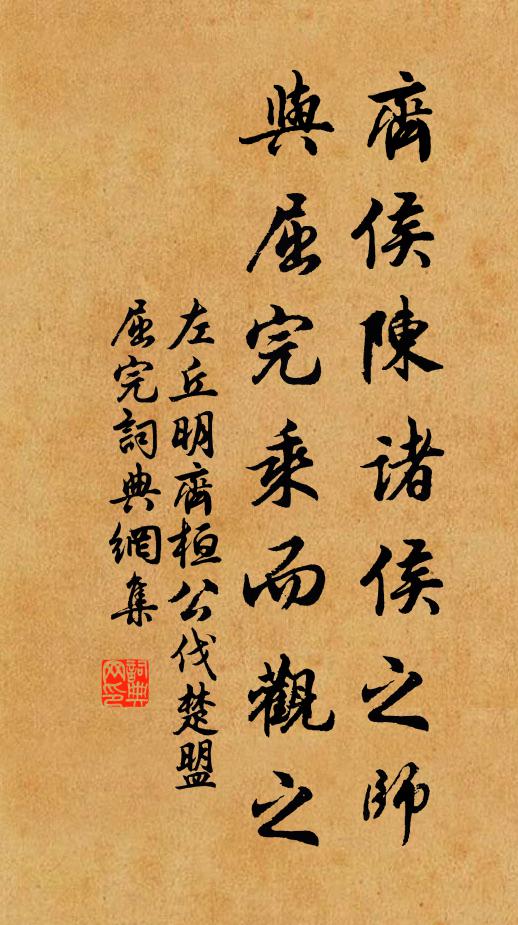 齊侯陳諸侯之師
與屈完乘而觀之
左丘明齊桓公伐楚盟
屈完詞典網集
詞典
网印